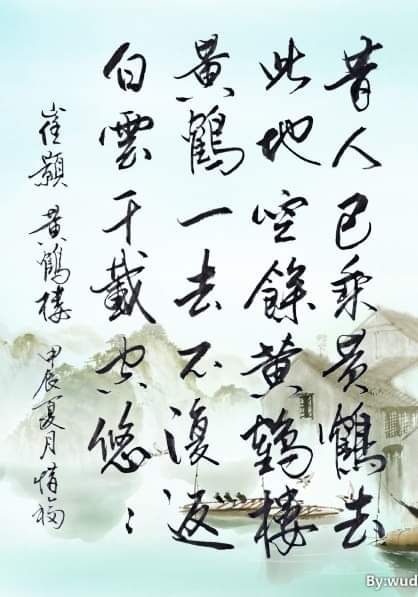 昔人已乘黄鶴去
此地空餘黄鶴樓
黄鶴一去不復返
白雲千載空悠〻
崔顥 黄鶴樓 甲辰夏月
By:wud